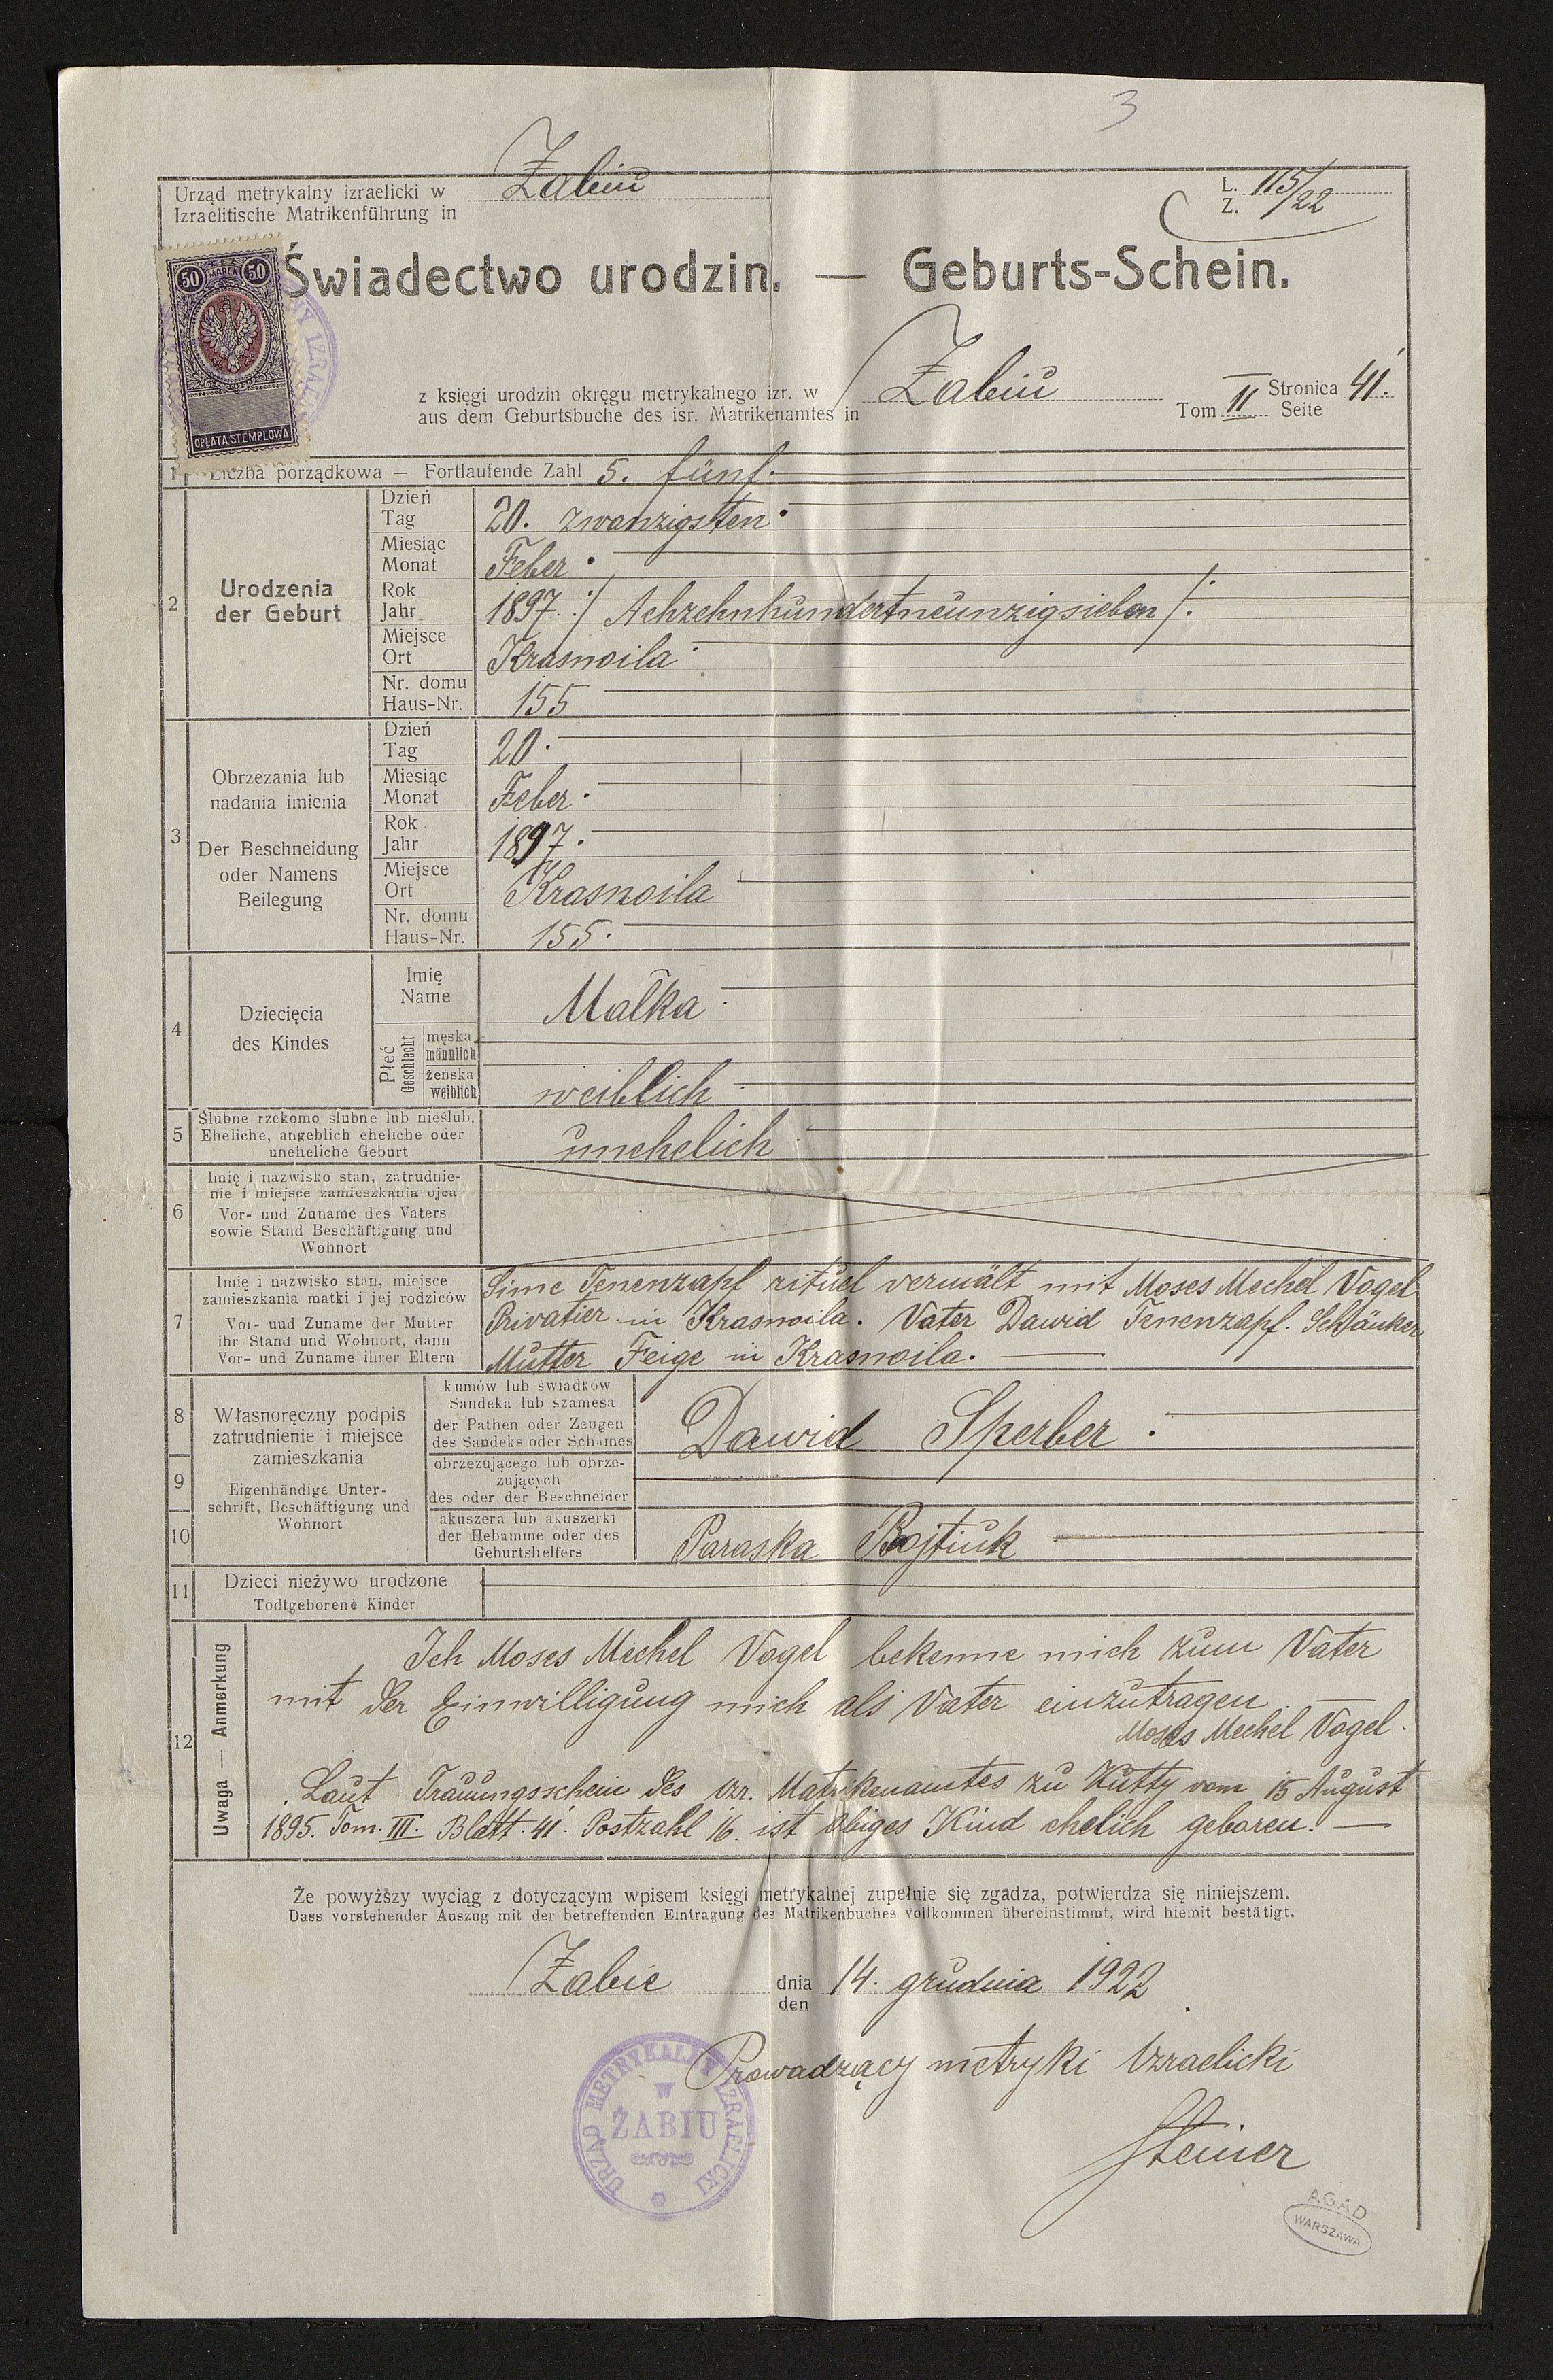 3
Urząd metrykalny izraelicki w Żabiu
Izraelitische Matrikenführung in
L. Z. 115/22
50 MAREK 50
OPŁATA STEMPLOWA
Świadectwo urodzin. — Geburts-Schein.
z księgi urodzin okręgu metrykalnego izr. w Żabiu Tom II Stronica 41.
aus dem Geburtsbuche des isr. Matrikenamtes in Seite
1 Liczba porządkowa — Fortlaufende Zahl 5. fünf.
2 Urodzenia
der Geburt
Dzień
Tag 20. zwanzigsten
Miesiąc
Monat Feber
Rok
Jahr 1897 :/ Achzehnhundertneunzigsieben /:
Miejsce
Ort Krasnoila
Nr. domu
Haus-Nr. 155
3 Obrzezania lub
nadania imienia
Der Beschneidung
oder Namens
Beilegung
Dzień
Tag 20.
Miesiąc
Monat Feber.
Rok
Jahr 1897.
Miejsce
Ort Krasnoila
Nr. domu
Haus-Nr. 155.
4 Dziecięcia
des Kindes
Imię
Name Malka
Płeć
Geschlecht
męska
männlich
żeńska
weiblich weiblich
5 Ślubne rzekomo ślubne lub nieślub.
Eheliche, angeblich eheliche oder
uneheliche Geburt
unehelich
6 Imię i nazwisko stan, zatrudnie-
nie i miejsce zamieszkania ojca
Vor- und Zuname des Vaters
sowie Stand Beschäftigung und
Wohnort
7 Imię i nazwisko stan, miejsce
zamieszkania matki i jej rodziców
Vor- und Zuname der Mutter
ihr Stand und Wohnort, dann
Vor- und Zuname ihrer Eltern
Sime Tenenzapf rituel vermält mit Moses Mechel Vogel
Privatier in Krasnoila. Vater Dawid Tenenzapf. Schänker
Mutter Feige in Krasnoila.
8
9
10
Własnoręczny podpis
zatrudnienie i miejsce
zamieszkania
Eigenhändige Unter-
schrift, Beschäftigung und
Wohnort
kumów lub świadków
Sandeka lub szamesa
der Pathen oder Zeugen
des Sandeks oder Schames
Dawid Sperber.
obrzezującego lub obrze-
zujących
des oder der Beschneider
akuszera lub akuszerki
der Hebamme oder des
Geburtshelfers
Paraska Bojtiuk
11 Dzieci nieżywo urodzone
Todtgeborene Kinder
12 Uwaga — Anmerkung
Ich Moses Mechel Vogel bekenne mich zum Vater
mit der Einwilligung mich als Vater einzutragen.
Moses Mechel Vogel.
Laut Trauungsschein des izr. Matrikenamtes zu Kutty vom 15 August
1895. Tom. III. Blatt. 41. Postzahl 16. ist obiges Kind ehelich geboren. —
Że powyższy wyciąg z dotyczącym wpisem księgi metrykalnej zupełnie się zgadza, potwierdza się niniejszem.
Dass vorstehender Auszug mit der betreffenden Eintragung des Matrikenbuches vollkommen übereinstimmt, wird hiemit bestätigt.
Żabie dnia 14. grudnia 1922
den
Prowadzący metryki Izraelicki
Steiner
URZĄD METRYKALNY IZRAELICKI
W
ŻABIU
AGAD
WARSZAWA